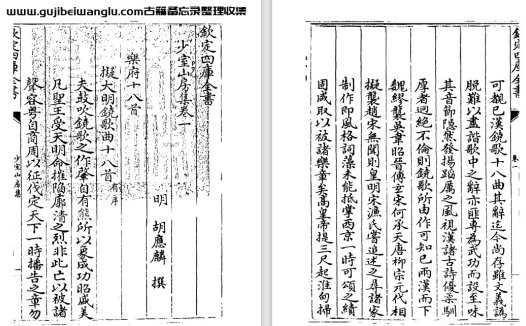 www.gujibeiwanglu.com古籍备忘录整理收集
欽定四庫全書
少室山房集卷一
明 胡應麟 撰
樂府十八首
擬大明鐃歌曲十八首 有序
夫鼓吹鐃歌之作肇自有熊所以暴成功昭盛美
凡聖王受天明命摧陷廓清之烈非此亡以被諸
聲容粤自商周以征伐定天下一時播告之章勿
欽定四庫全書
少室山房集
欽定四庫全書
卷一
可覩已漢鐃歌十八曲其辭迄今尚存雖文義譌
脫難以盡諧歌中之辭亦匪專為武功而設至味
其音節隱然發揚蹈厲之風視漢諸古詩優柔馴
厚者迥絶不倫則鐃歌所由作可知已兩漢而下
魏繆襲吳韋昭晉傅玄宋何承天唐柳宗元代相
擬襲趙宋無聞則皇明宋濂氏嘗追述之尋諸家
制作即風格詞藻未能抵掌西京一時可頌之績
固咸取以被諸樂章矣高皇帝提三尺起淮甸掃